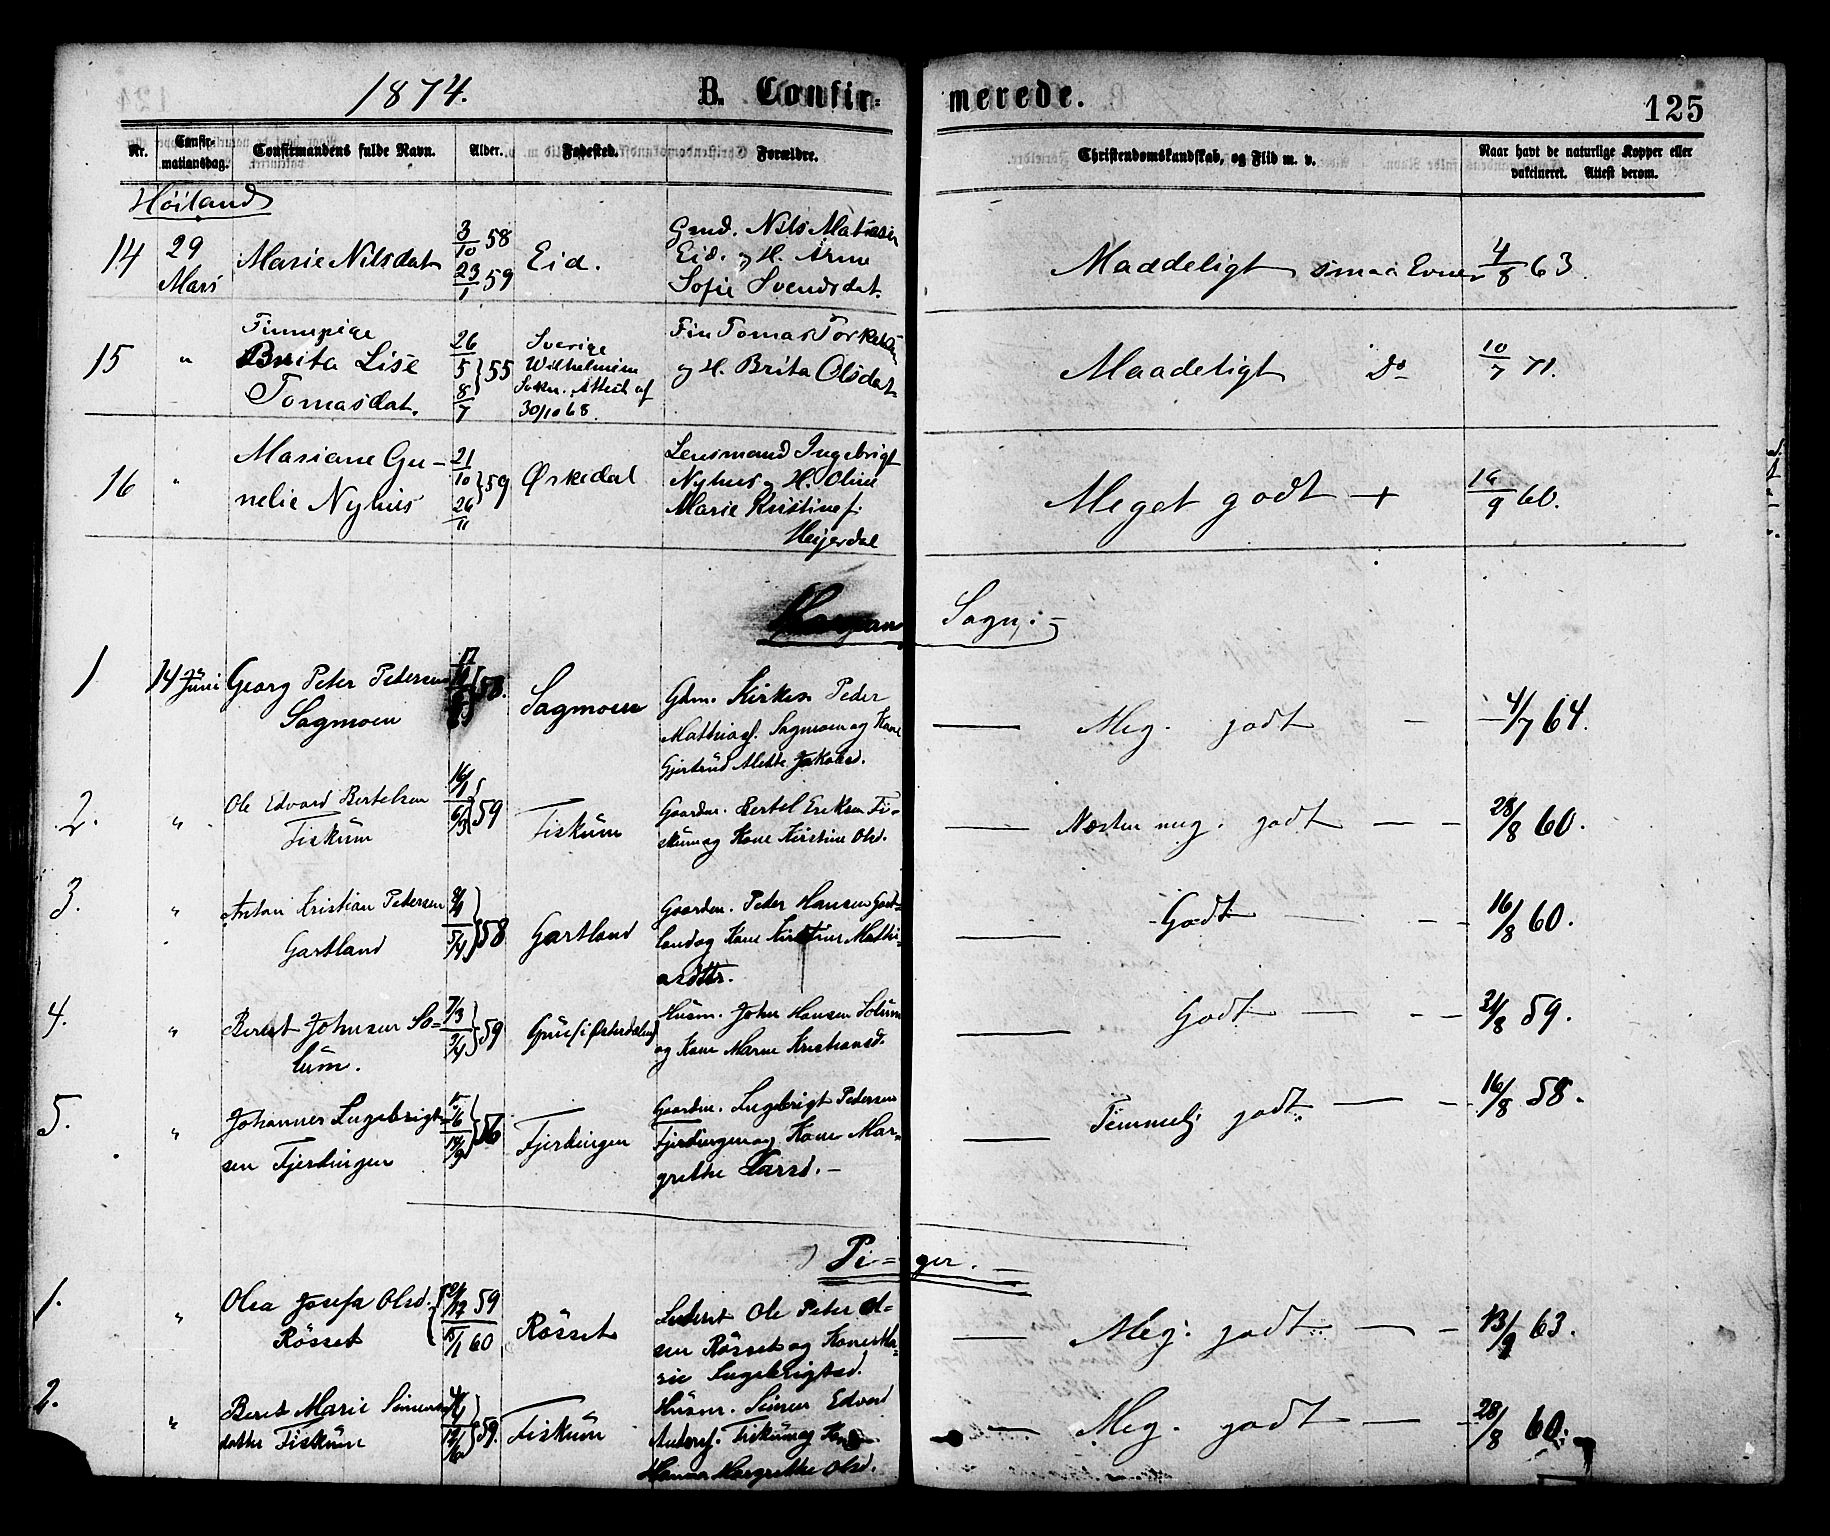 1874. B. Confir- merede. 125
Nr. Confir-mationsdag. Confirmandens fulde Navn. Alder. Fødested. Forældre. Christendomskundskab, og Flid m. v. Naar havt de naturlige Kopper eller vakcineret. Attest derom.
Höiland
14 29 Mars Marie Nilsdat 3/10 58 23/1 59 Eid. Gmd. Nils Matiasen
Eid. og H. Arne
Sofie Svendsdat. Maadeligt smaa Evner 4/8 63.
15 " Finnepige
Brita Lise
Tomasdat. 26/5 8/7 } 55 Sverige
Wilhelmina
Sokn. Attest af
30/10 68. Fin Tomas Torkelsen
og H. Brita Olsdat Maadeligt Do 10/7 71.
16 " Mariane Gu-
nelie Nyhus 21/10 26/11 } 59 Ørkedal Lensmand Ingebrigt
Nyhus og H. Oline
Marie Kristine f.
Heijerdal Meget godt + 16/9 60.
Sogn:
1 14de Juni Georg Peter Pedersen
Sagmoen 58. Sagmoen Gdm. Kirkes. Peder
Mathias. Sagmoen og Kone
Gjertrud Alette Jakobsd. Meg. godt 4/7 64.
2. " Ole Edvard Bertelsen
Fiskum 16/1 6/3 } 59 Fiskum Gaardm. Bertel Eriksen Fi-
skum og Kone Kirstine Olsd. Næsten meg. godt 28/8 60.
3. " Anton Kristian Petersen
Gartland 5/4 } 58 Gartland Gaardm. Peder Hansen Gart-
land og Kone Kirstine Mathi-
asdttr. Godt 16/8 60.
4. " Berest Johnsen So-
lum. 7/3 3/4 } 59 Grue i Østerdalen Husm. John Hansen Solum
og Kone Maren Kristiansd. Godt 21/8 59.
5. " Johannes Ingebrigt-
sen Fjerdingen 56 Fjerdingen Gaardm. Ingebrigt Petersen
Fjerdingen og Kone Mar-
grethe Larsd. Temmelig godt 16/8 58.
Pi-ger.
1. " Olea Josefa Olsd.
Rösset 59 15/1 60 Rösset Ole Peter Ol-
sen Rösset og Kone Ma-
rie Ingebrigtsd. Meg. godt 13/9 63.
2. " Beret Marie Simens-
datter Fiskum 59. Fiskum Husm. Simen Edvard
Anders. Fiskum og Kone
Hanna Margrethe Olsd. Meg. godt 28/8 60.